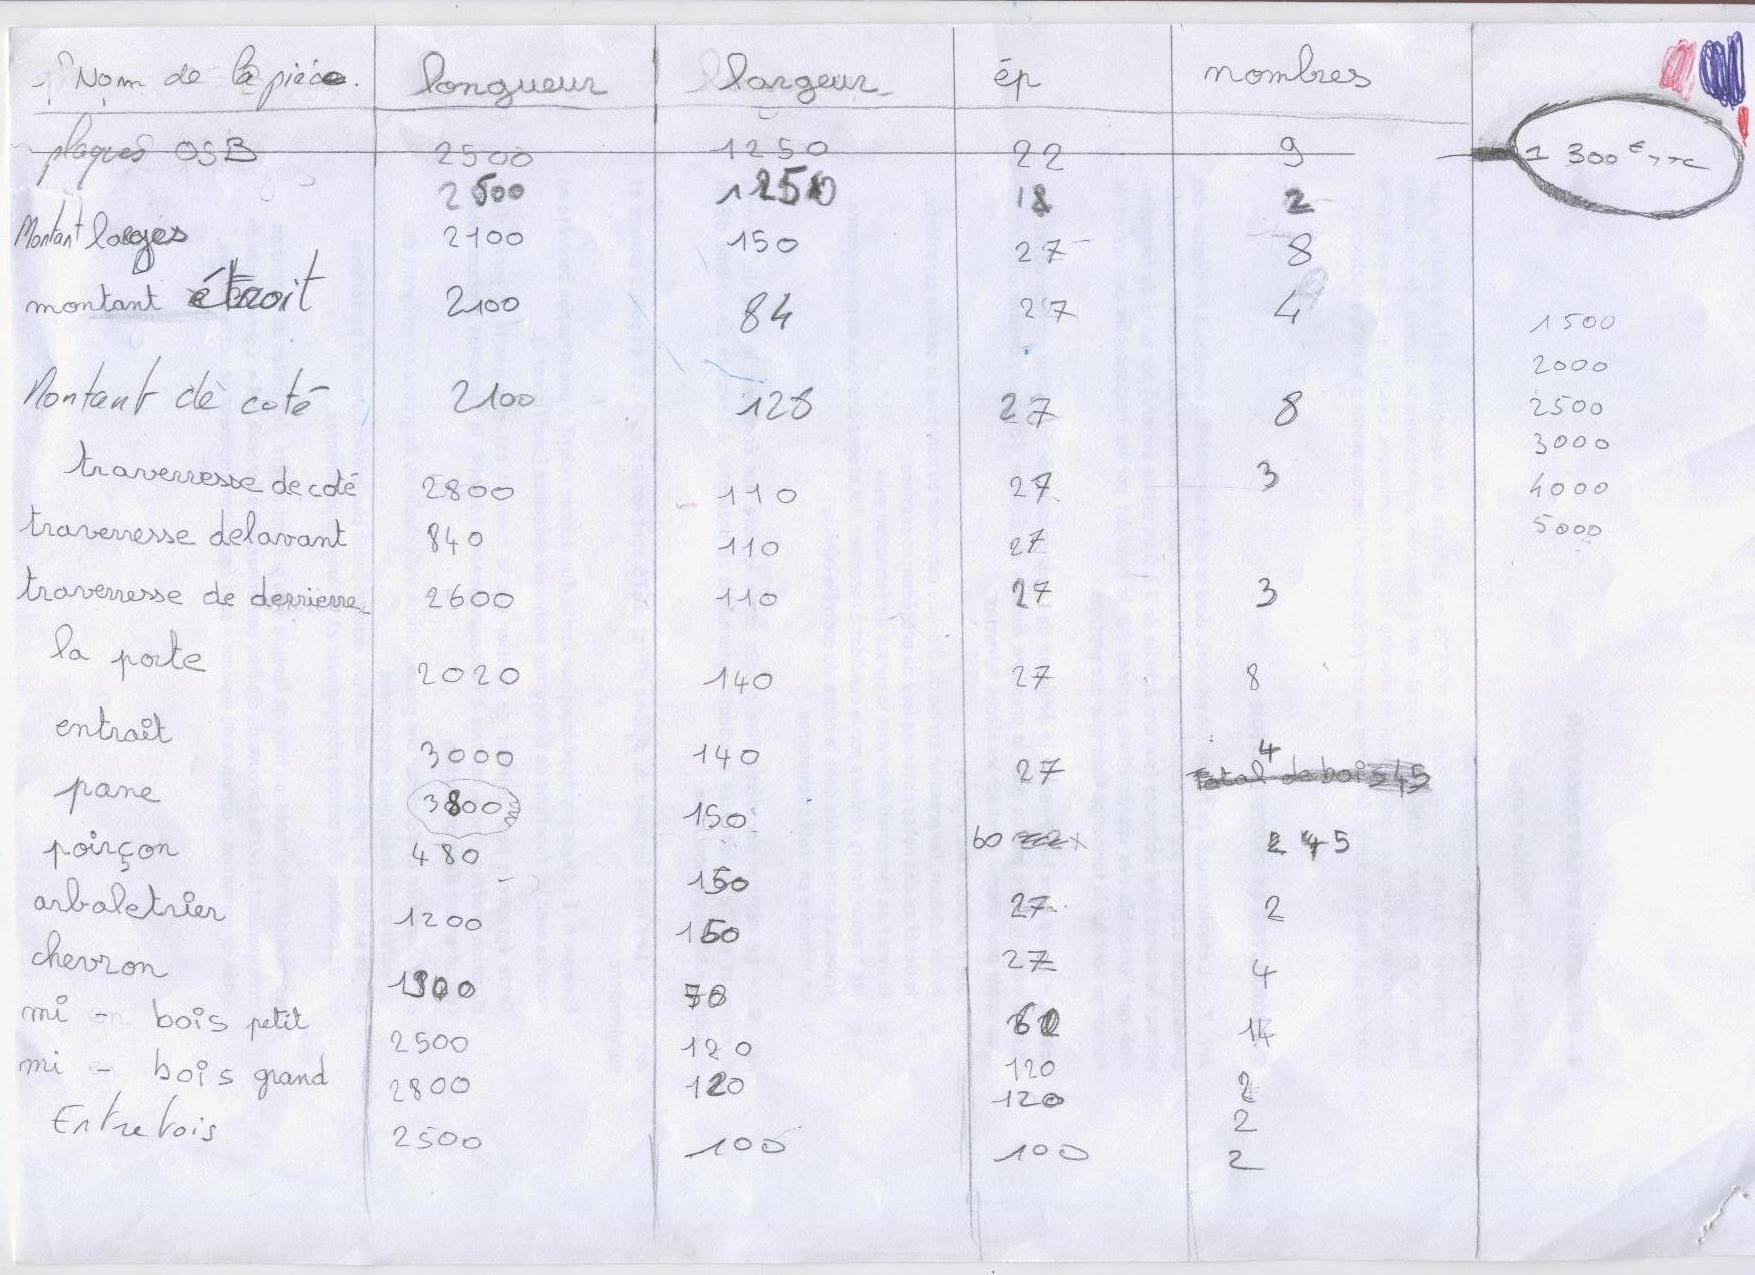 Nom de la pièce. longueur largeur ép nombres
plaques OSB 2500 1250 22 9 1 300 € TTC
2500 1250 18 2
Montant larges 2100 150 27 8
montant étroit 2100 84 27 4 1500
2000
Montant de coté 2100 128 27 8 2500
3000
traverresse de coté 2800 110 27 3 4000
traverresse delavant 840 110 27 5000
traverresse de derrierre 2600 110 27 3
la porte 2020 140 27 8
entrait 3000 140 27 4
Total de bois 45
pane 3800 150 60
poirçon 480 150 27 2
arbaletrier 1200 150 27 4
chevron 1900 70 14
mi - bois petit 2500 120 120 2
mi - bois grand 2800 120 120 2
Entretois 2500 100 100 2